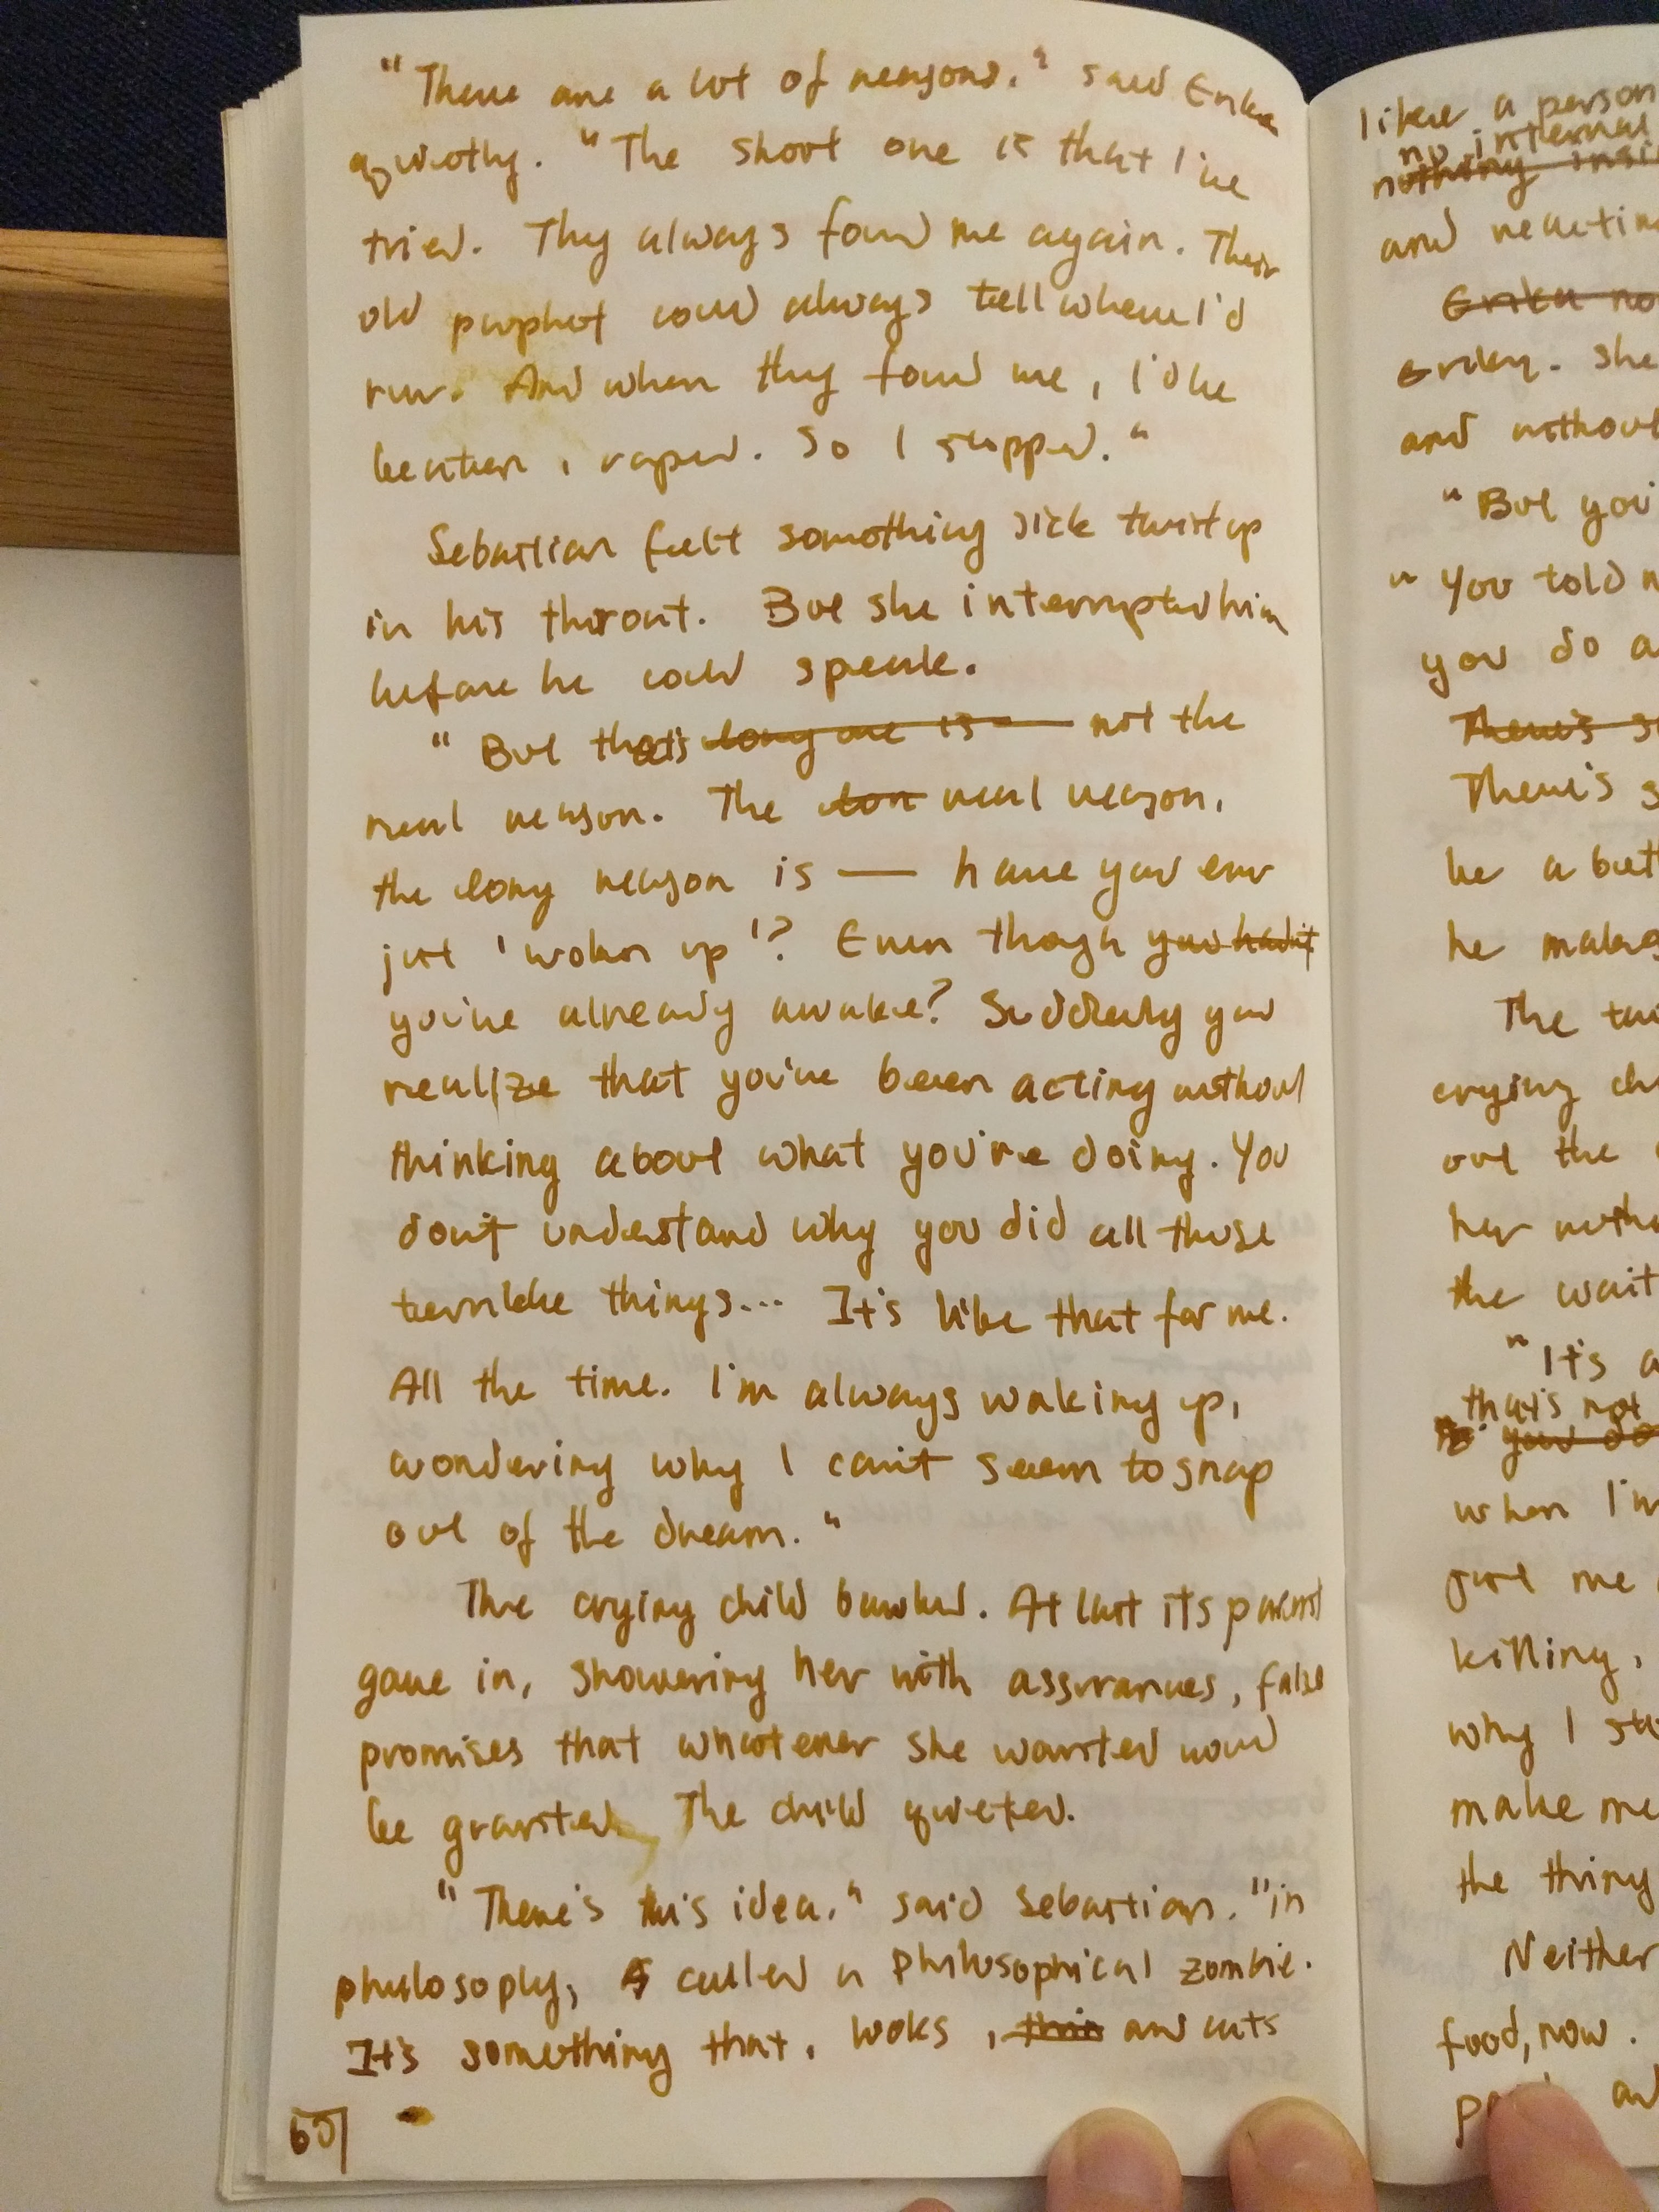 "There are a lot of reasons." said Erika
quietly. "The short one is that I've
tried. They always found me again. Their
old prophet could always tell where I'd
run. And when they found me, I'd be
beaten, raped. So I stopped."
Sebastian felt something sick twist up
in his throat. But she interrupted him
before he could speak.
"But that's long one is — not the
real reason. The lon real reason,
the long reason is — have you ever
just 'woken up'? Even though you hadn't
you're already awake? Suddenly you
realize that you've been acting without
thinking about what you're doing. You
don't understand why you did all those
terrible things... It's like that for me.
All the time. I'm always waking up,
wondering why I can't seem to snap
out of the dream."
The crying child bawled. At last its parent
gave in, showering her with assurances, false
promises that whatever she wanted would
be granted. The child quieted.
"There's this idea," said Sebastian. "in
philosophy, called a philosophical zombie.
It's something that, looks, and acts
60
like a person
no internal
nothing insi
and reacting
Erika no
Erika. She
and without
"But you
"You told
you do a
There's s
There's s
be a bet
he makes
The
crying ch
out the
her
the wait
"It's a
that's not
you do
when I'm
just me
killing,
why I
make me
the thing
Neither
food, now.